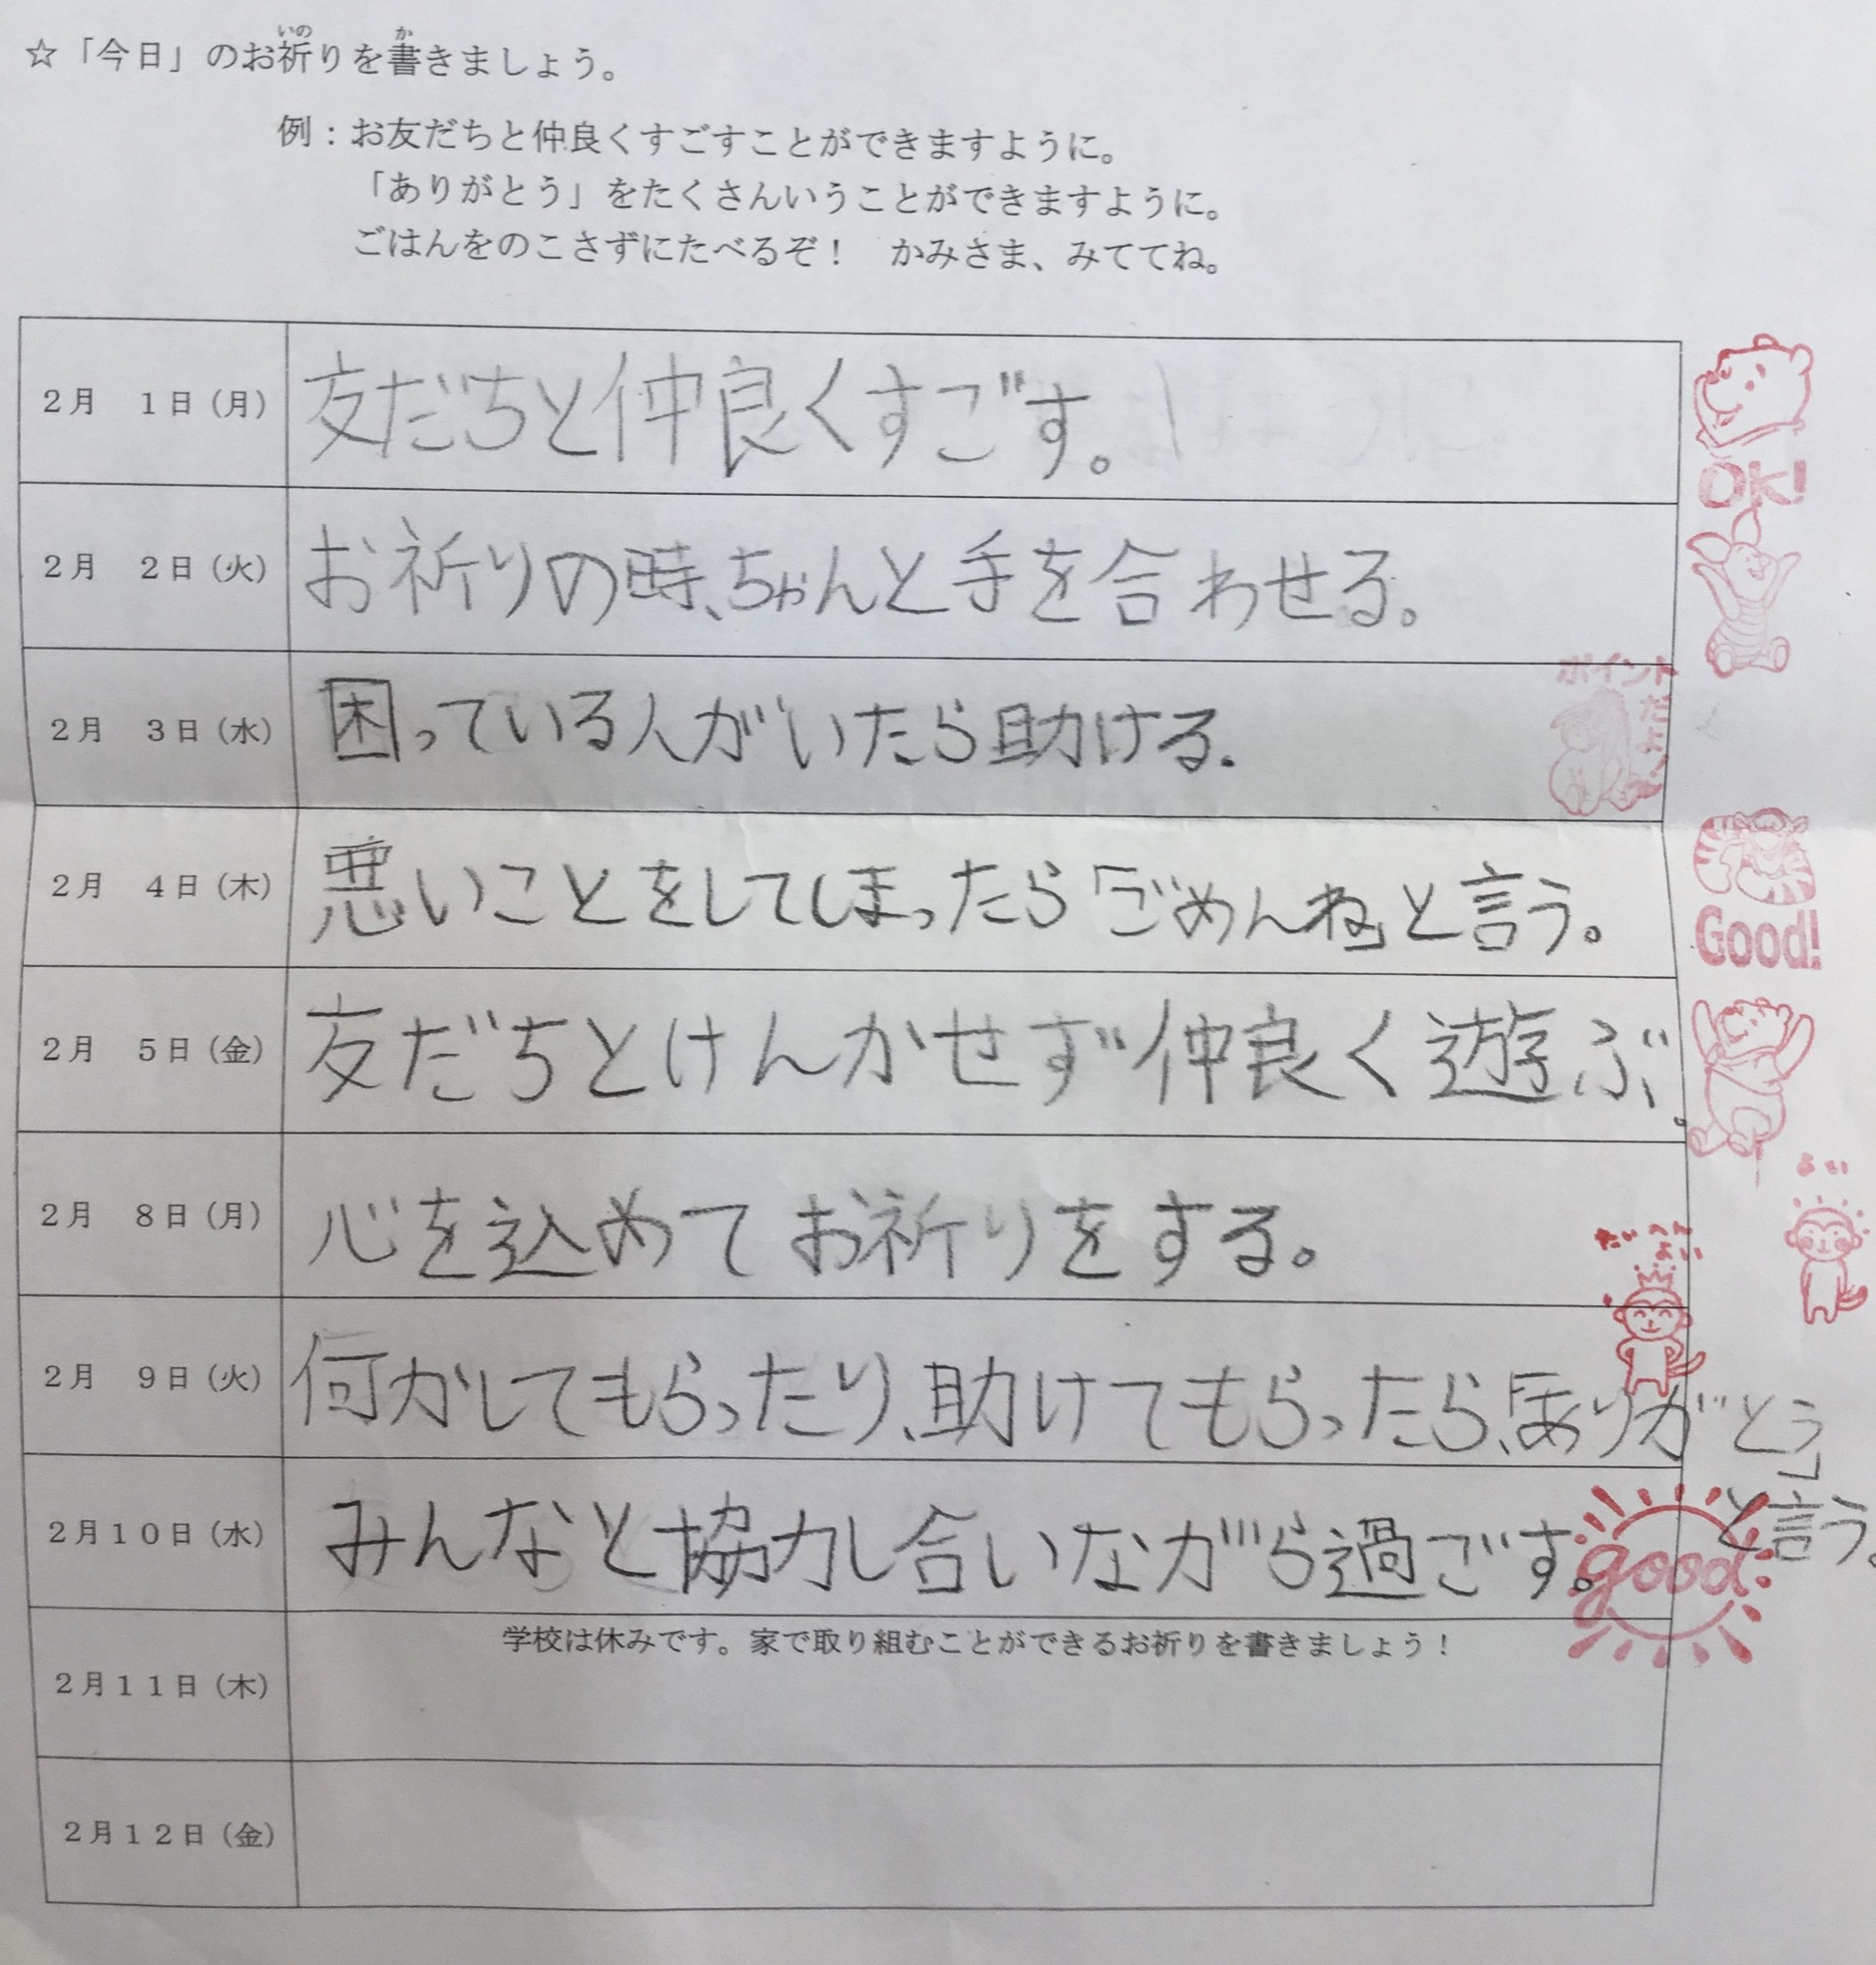 ☆「今日」のお祈りを書きましょう。
いの か
例：お友だちと仲良くすごすことができますように。
「ありがとう」をたくさんいうことができますように。
ごはんをのこさずにたべるぞ！　かみさま、みててね。
2月　1日（月） 友だちと仲良くすごす。
OK!
2月　2日（火） お祈りの時、ちゃんと手を合わせる。
2月　3日（水） 困っている人がいたら助ける。
ポイントだよ!
2月　4日（木） 悪いことをしてしまったら「ごめんね」と言う。
Good!
2月　5日（金） 友だちとけんかせず仲良く遊ぶ。
よい
2月　8日（月） 心を込めてお祈りをする。
たいへんよい
2月　9日（火） 何かしてもらったり、助けてもらったら、「ありがとう」
と言う。
2月10日（水） みんなと協力し合いながら過ごす。
good
2月11日（木） 学校は休みです。家で取り組むことができるお祈りを書きましょう！
2月12日（金）